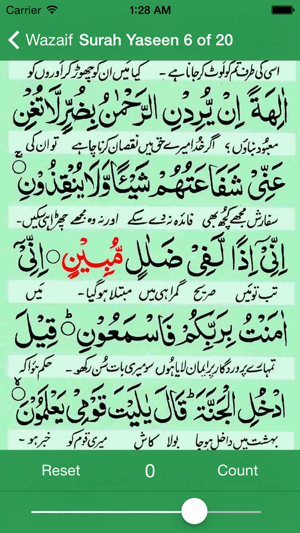 Carrier 1:28 AM
Wazaif Surah Yaseen 6 of 20
اسی کی طرف تم کو لوٹ کر جانا ہے - کیا میں ان کو چھوڑ کر اوروں کو
اٰلِهَةً اِنْ يُّرِدْنِ الرَّحْمٰنُ بِضُرٍّ لَّا تُغْنِ
معبود بناؤں؟ اگر خدا میرے حق میں نقصان کرنا چاہے تو ان کی
عَنِّيْ شَفَاعَتُهُمْ شَيْـًٔا وَّلَا يُنْقِذُوْنِ
سفارش مجھے کچھ بھی فائدہ نہ دے سکے اور نہ وہ مجھے چھڑا ہی سکیں۔
اِنِّيْٓ اِذًا لَّفِيْ ضَلٰلٍ مُّبِيْنٍ اِنِّيْٓ
تب تو میں صریح گمراہی میں مبتلا ہو گیا۔ میں
اٰمَنْتُ بِرَبِّكُمْ فَاسْمَعُوْنِ قِيْلَ
تمہارے پروردگار پر ایمان لایا ہوں سو میری بات سُن رکھو۔ حکم ہوا کہ
ادْخُلِ الْجَنَّةَ قَالَ يٰلَيْتَ قَوْمِيْ يَعْلَمُوْنَ
بہشت میں داخل ہو جا بولا کاش میری قوم کو خبر ہو -
Reset 0 Count